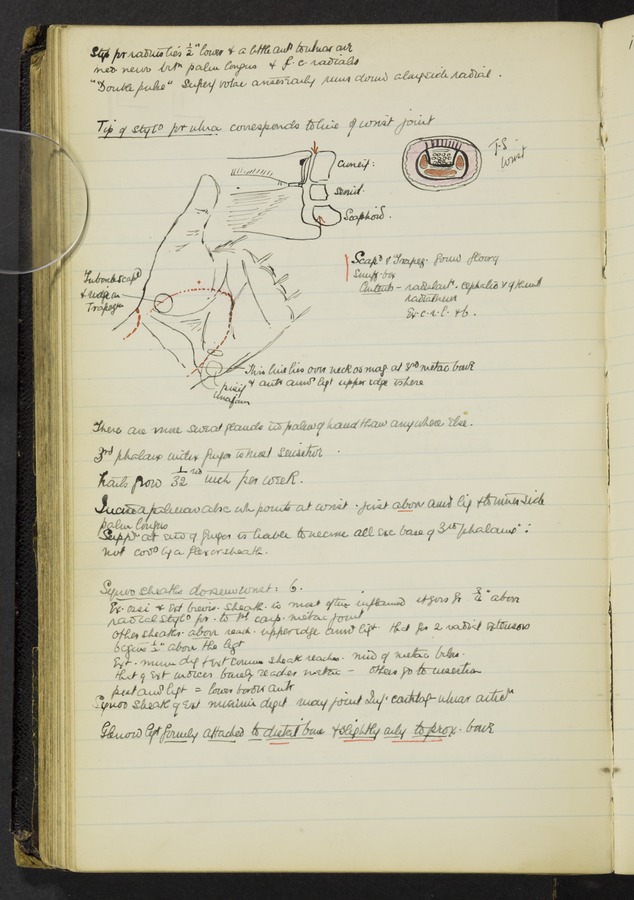 Styl pr radius lies ½" lower & a little antr to ulnar one
med nerve betn palm longus & f. c radialis
"Double pulse" Superf volar anteriorly runs down alongside radial.
Tip of stylo pr ulna corresponds to line of wrist joint
Cuneif:
Semil.
Scaphoid.
T.S wrist
Scapd & Trapez. form floor of
Snuff-box
Contents - radial art. cephalic v &
radial nerve
Ex. c. r. l. & b.
Tuberc scapd
& ridge on
Trapezm
This line lies over neck as mag. at 3rd metac bone
& antr annr ligt upper edge where
pisif
Unciform
There are more sweat glands in palm of hand than anywhere else.
3rd phalanx index finger is most sensitive.
Nails grow 1/32nd inch per week.
Incise a palmar absc wh points at wrist. just above annr lig & to inner side
palm longus
Suppn at end of finger is liable to necrose all exc base of 3rd phalanx:
not covd by a flexor sheath.
Synov sheaths dorsum wrist: 6.
Ex. ossi & Ext brevis. sheath is most often inflamed it goes fr ¾" above
radial stylo pr. to 1st carp. metac joint
Other sheaths. above reach. upper edge annr ligt. that for 2 radial extensors
begins ½" above the ligt
Ext. minm dig & Ext comm sheath reaches. mid of metac bones.
that of Ext indices barely reaches metac - others go to insertion
post annr ligt = lower border antr
Synov sheath of Ext minimi digit may joint Inf. cartilage ulnar articn
Glenoid ligt firmly attached to distal bone & slightly only to prox. bone